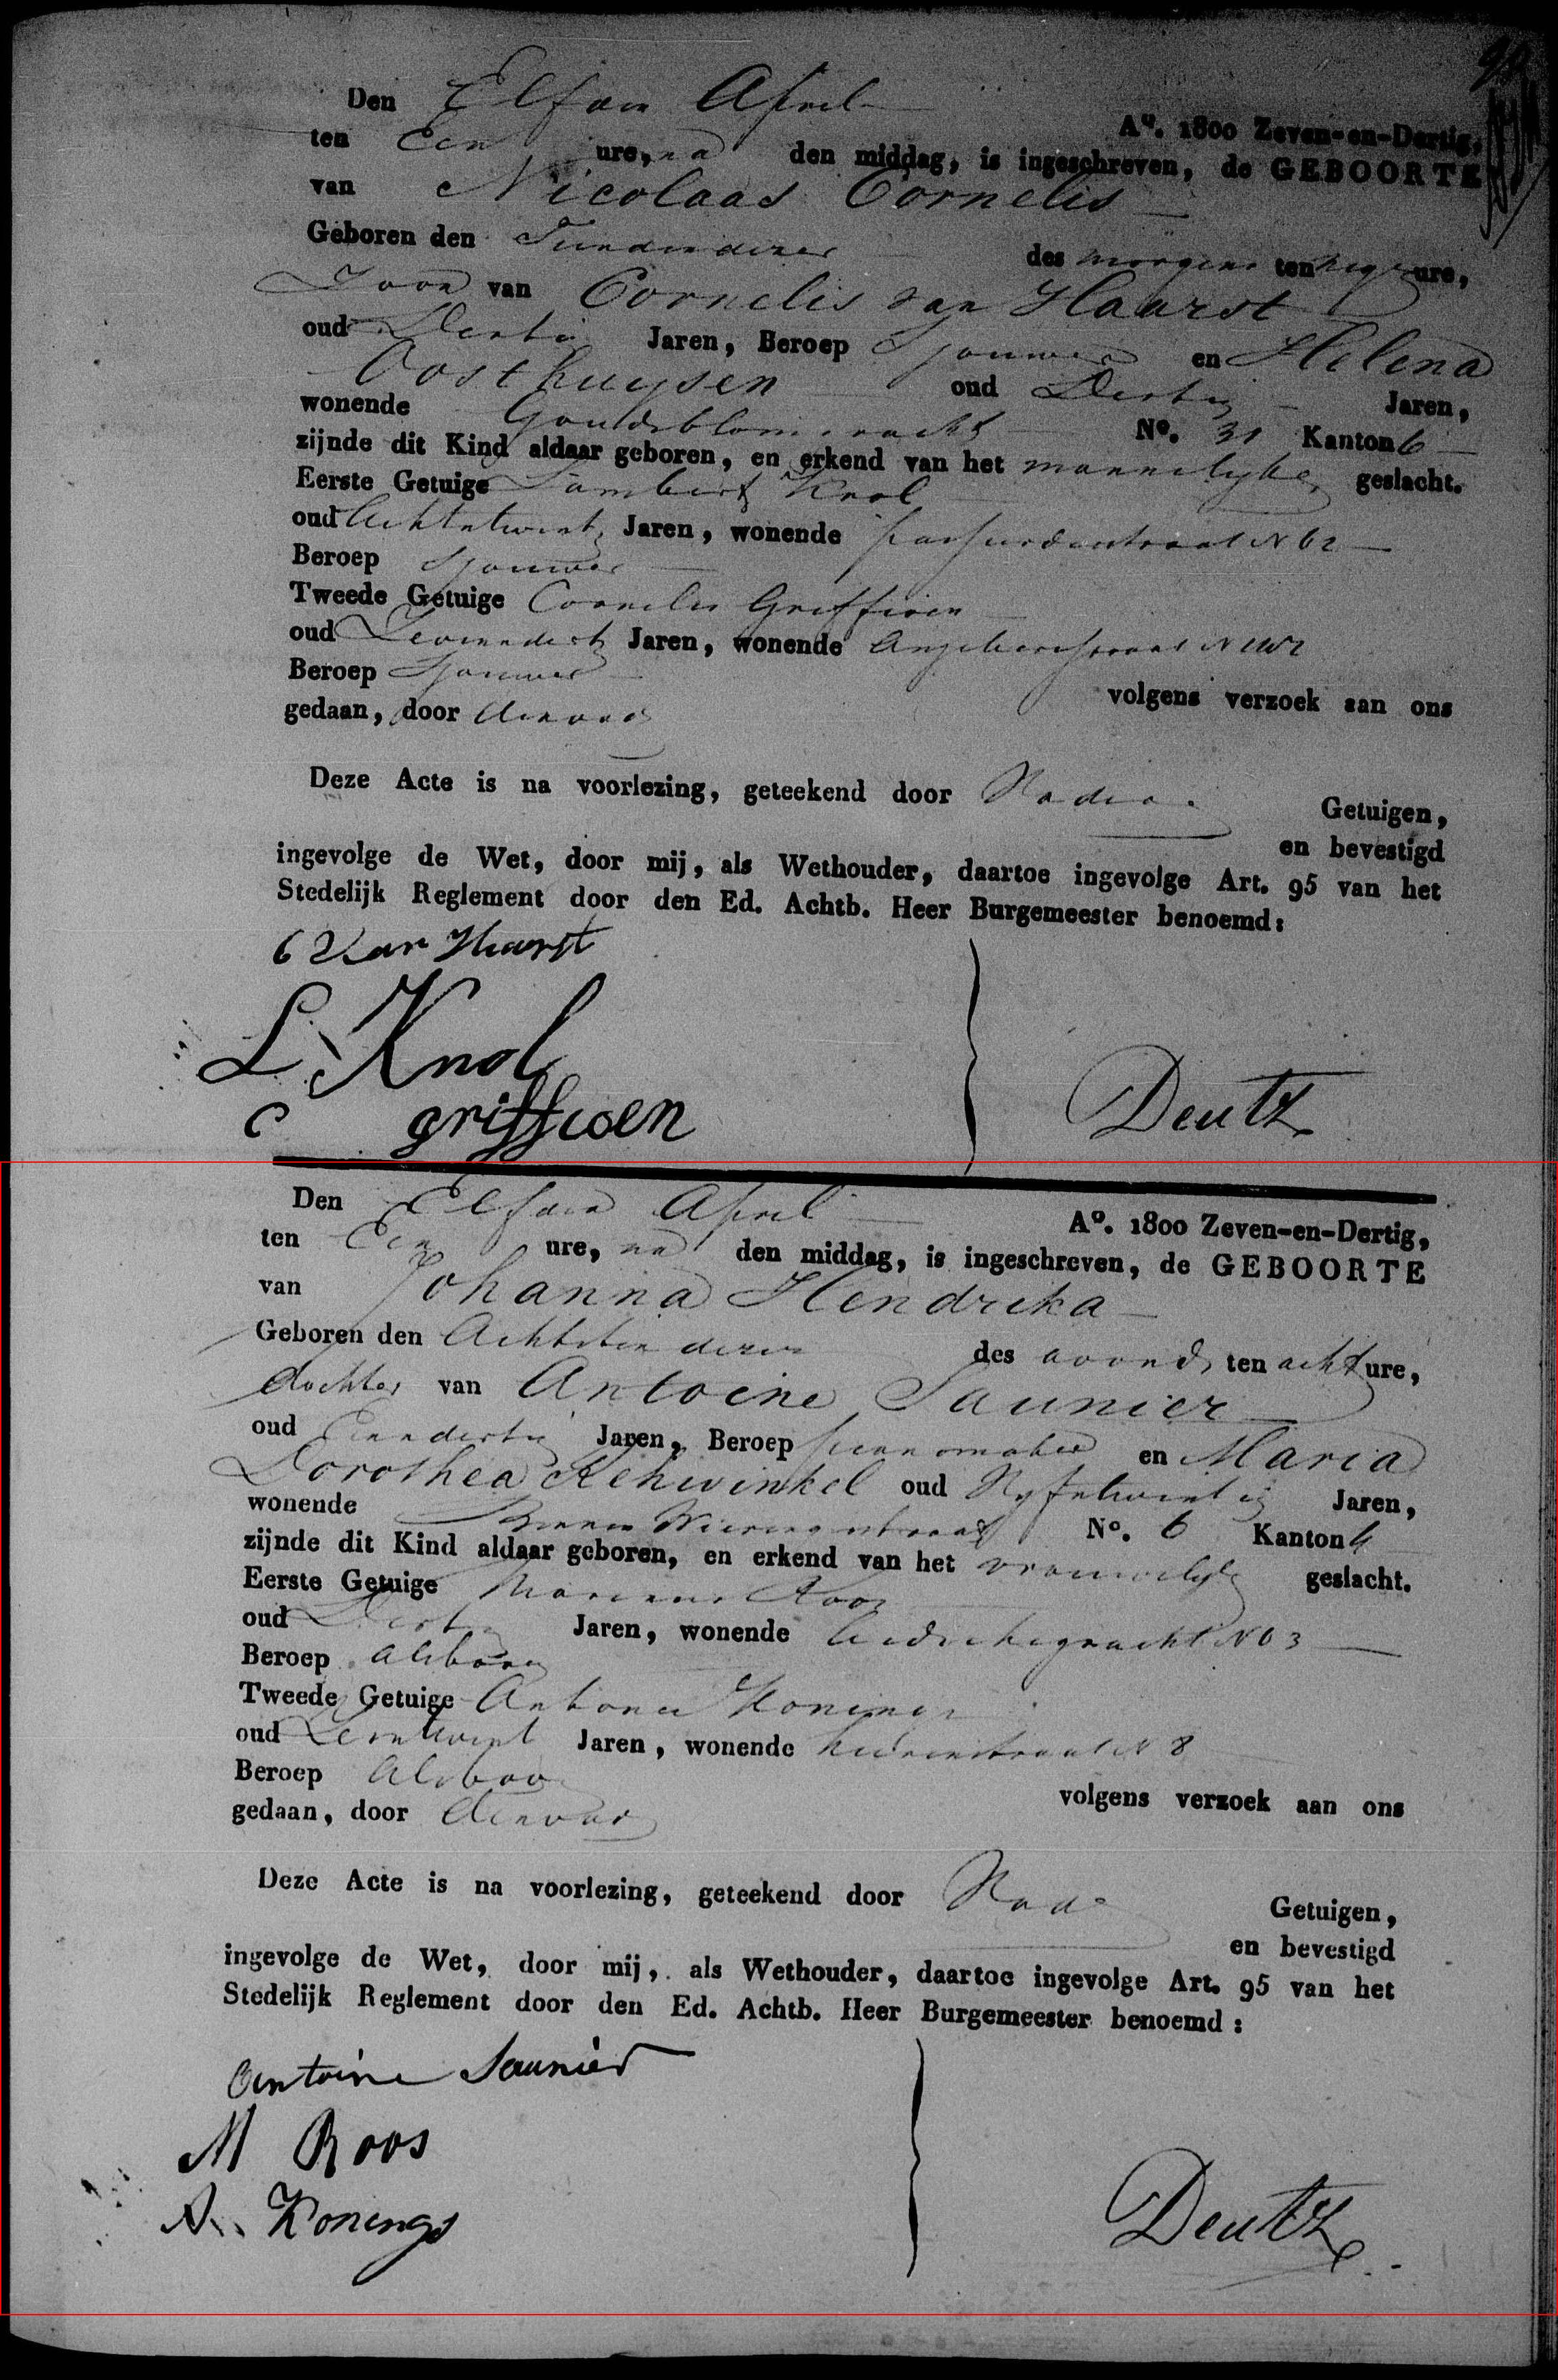 Den Elfden April A°. 1800 Zeven-en-Dertig,
ten Een ure, na den middag, is ingeschreven, de GEBOORTE
van Nicolaas Cornelis
Geboren den dezer des morgens ten negen ure,
Zoon van Cornelis van Haarst
oud Dertig Jaren, Beroep Sjouwer en Helena
Oosthuysen oud Dertig Jaren,
wonende Goudsbloemgracht N°. 31 Kanton 6
zijnde dit Kind aldaar geboren, en erkend van het mannelyke geslacht.
Eerste Getuige Lambert Knol
oud Achtentwintig Jaren, wonende N 62
Beroep Sjouwer
Tweede Getuige Cornelis Griffioen
oud Zevenendertig Jaren, wonende Anjeliersstraat N
Beroep Sjouwer
volgens verzoek aan ons
gedaan, door den vader
Deze Acte is na voorlezing, geteekend door Vader Getuigen,
en bevestigd
ingevolge de Wet, door mij, als Wethouder, daartoe ingevolge Art. 95 van het
Stedelijk Reglement door den Ed. Achtb. Heer Burgemeester benoemd:
C Van Haarst
L Knol
C griffioen
Deutz
Den Elfden April A°. 1800 Zeven-en-Dertig,
ten Een ure, na den middag, is ingeschreven, de GEBOORTE
van Johanna Hendrika
Geboren den Achtsten dezer des avonds ten acht ure,
dochter van Antoine Saunier
oud Eenendertig Jaren, Beroep pianomaker en Maria
Dorothea Kehwinkel oud Vyfentwintig Jaren,
wonende Binnen Wieringerstraat N°. 6 Kanton
zijnde dit Kind aldaar geboren, en erkend van het vrouwelyke geslacht.
Eerste Getuige Marinus Roos
oud Dertig Jaren, wonende Leidschegracht N 63
Beroep Als boven
Tweede Getuige Antonie Konings
oud Jaren, wonende N 8
Beroep Als boven
volgens verzoek aan ons
gedaan, door den vader
Deze Acte is na voorlezing, geteekend door Vader Getuigen,
en bevestigd
ingevolge de Wet, door mij, als Wethouder, daartoe ingevolge Art. 95 van het
Stedelijk Reglement door den Ed. Achtb. Heer Burgemeester benoemd:
Antoine Saunier
M Roos
A. Konings
Deutz